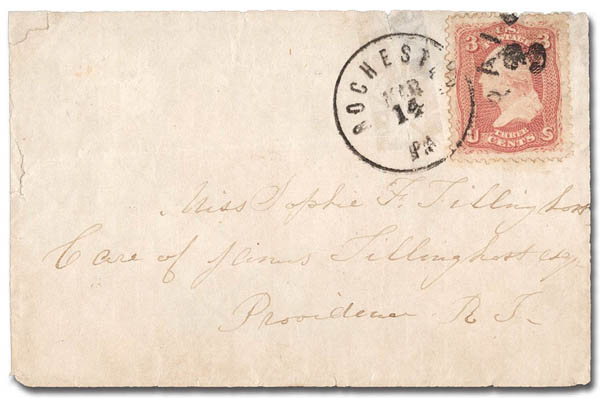 ROCHESTER
MAR
14
PA
PAID
3
3 3
U.S.
POSTAGE
U S
THREE
CENTS
Miss Sophie F. Tillinghast
Care of James Tillinghast esq.
Providence R I-